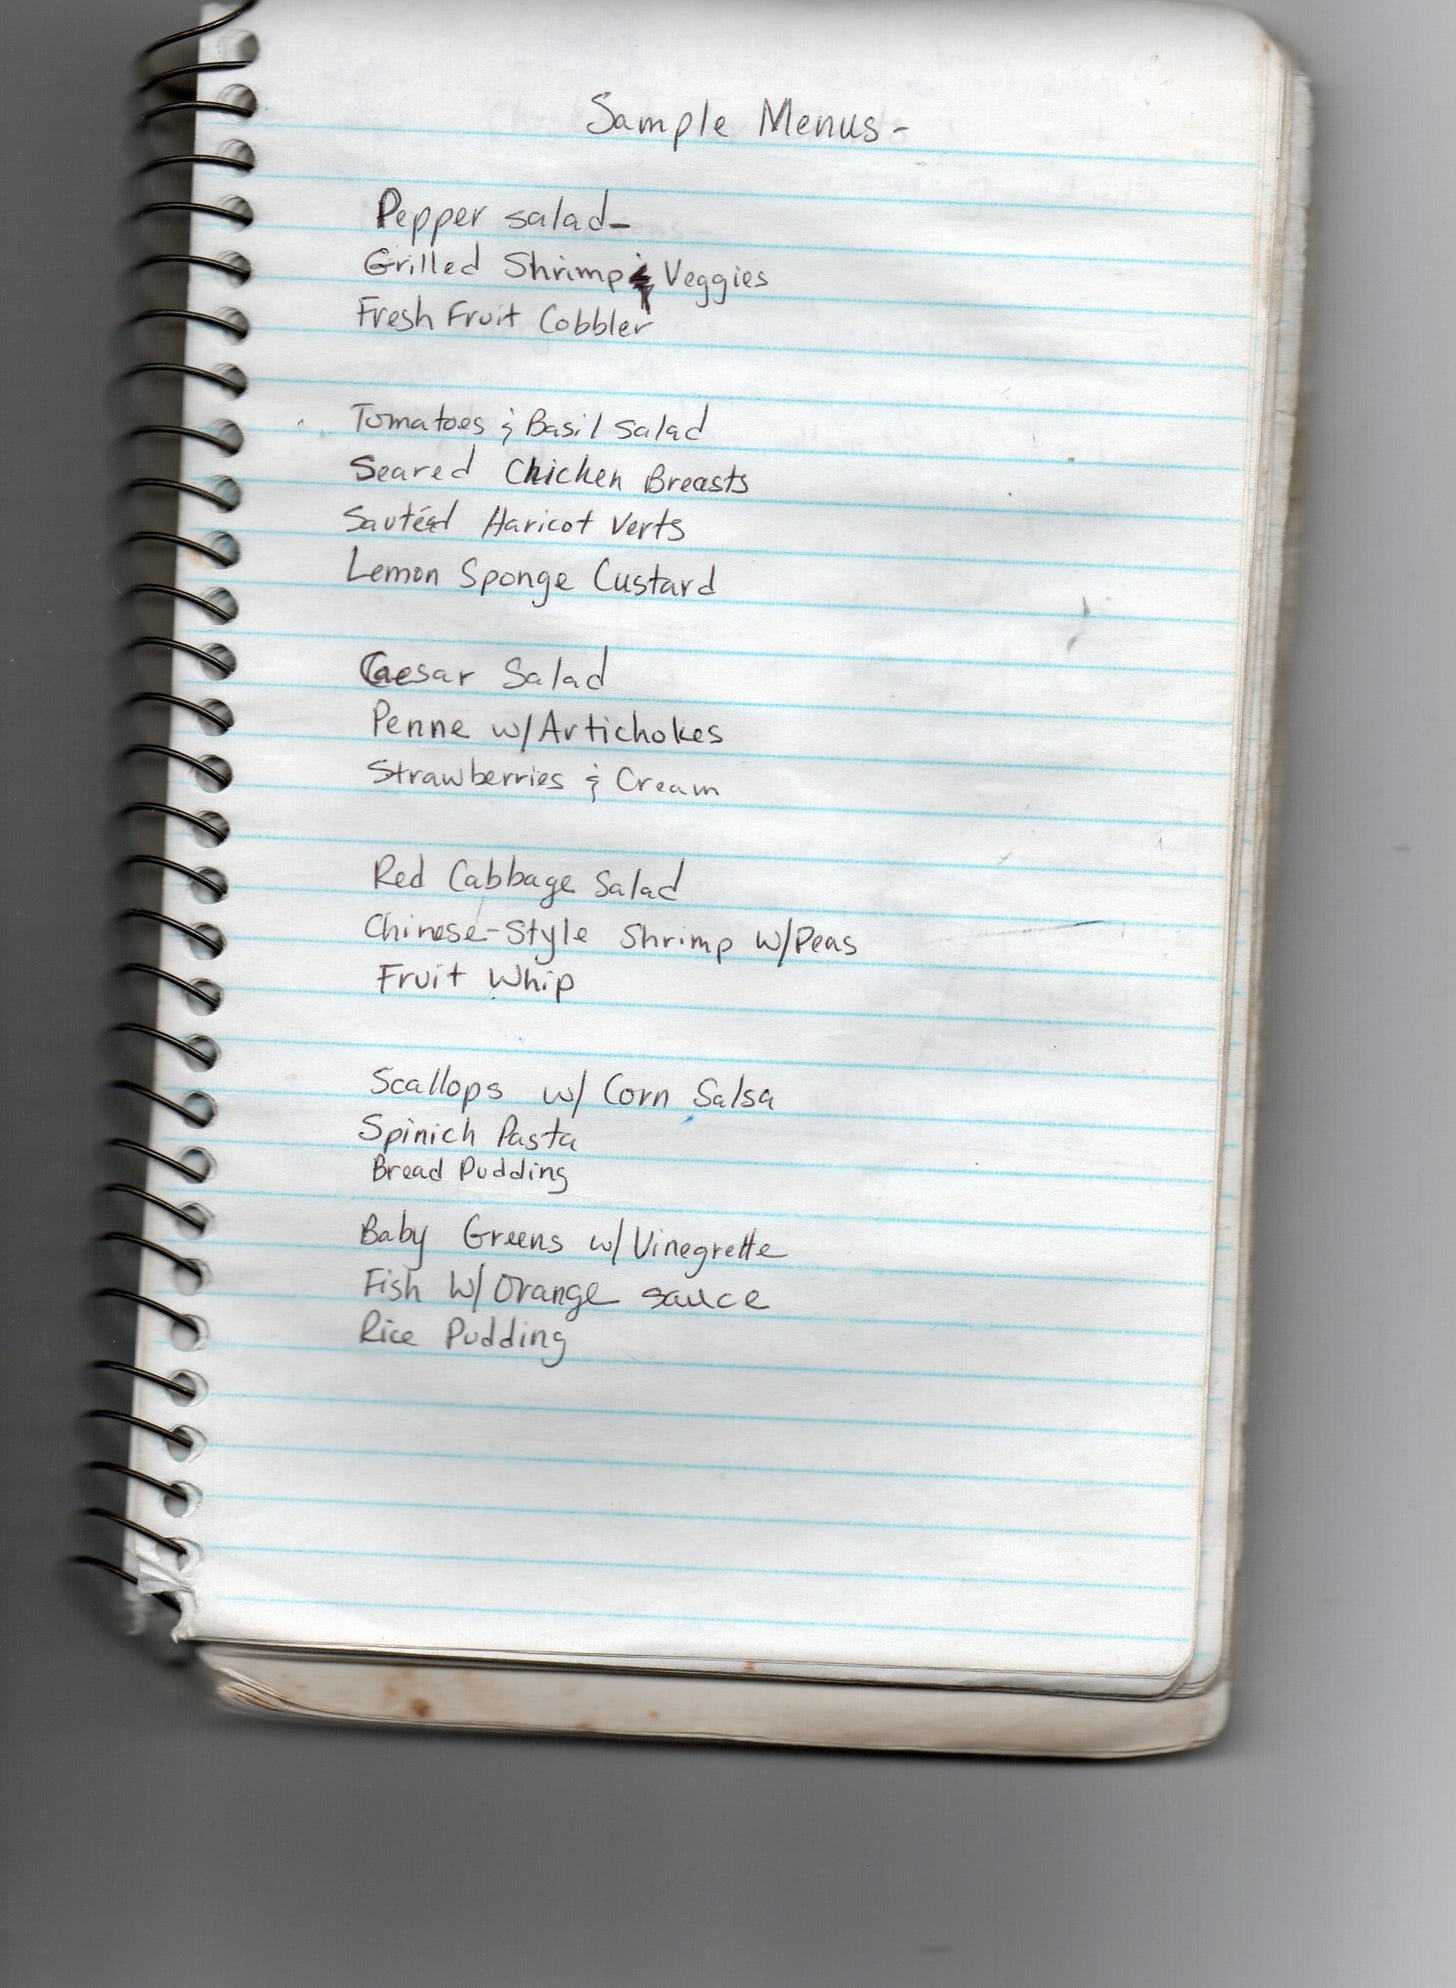 Sample Menus-
Pepper salad-
Grilled Shrimp & Veggies
Fresh Fruit Cobbler
Tomatoes & Basil Salad
Seared Chicken Breasts
Sautéed Haricot Verts
Lemon Sponge Custard
Caesar Salad
Penne w/Artichokes
Strawberries & Cream
Red Cabbage Salad
Chinese-Style Shrimp w/Peas
Fruit Whip
Scallops w/ Corn Salsa
Spinich Pasta
Bread Pudding
Baby Greens w/ Vinegrette
Fish w/ Orange sauce
Rice Pudding